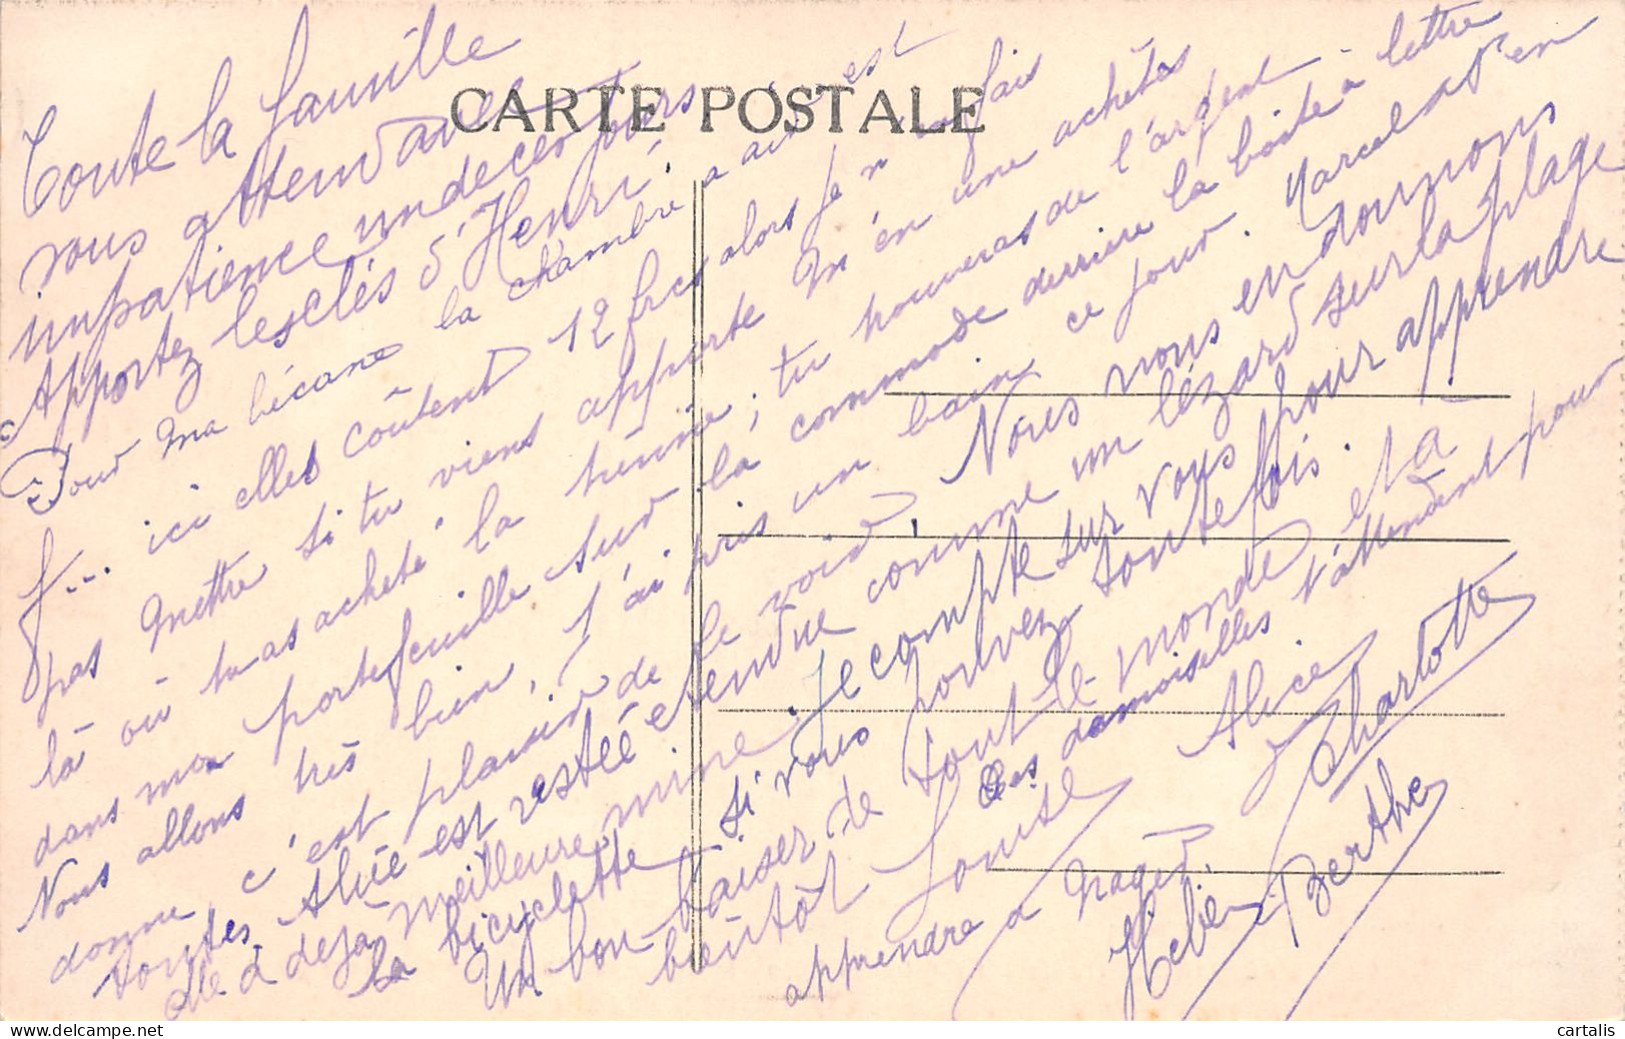 CARTE POSTALE
Toute la famille
vous attend avec
impatience un de ces jours
Apportez les clés d'Henri.
Pour ma bécane la chambre à air est
f... ici elles coûtent 12 frcs alors je n' vais
pas mettre si tu viens apporte m'en une achètes
là où tu as acheté la tienne; tu trouveras de l'argent
dans mon portefeuille sur la commode derrière la boîte à lettre
Nous allons très bien, j'ai pris un bain ce jour. Marcel s'en
donne, c'est plaisir de le voir Nous nous en donnons
toutes, Alice est restée étendue comme un lézard sur la plage
elle a déjà meilleure mine. Je compte sur vous pour apprendre
la bicyclette si vous pouvez toutefois.
Un bon baiser de tout le monde et à
bientôt Louise
Ces demoiselles t'attendent pour
apprendre à nager.
Alice
Charlotte
Berthe
cartalis